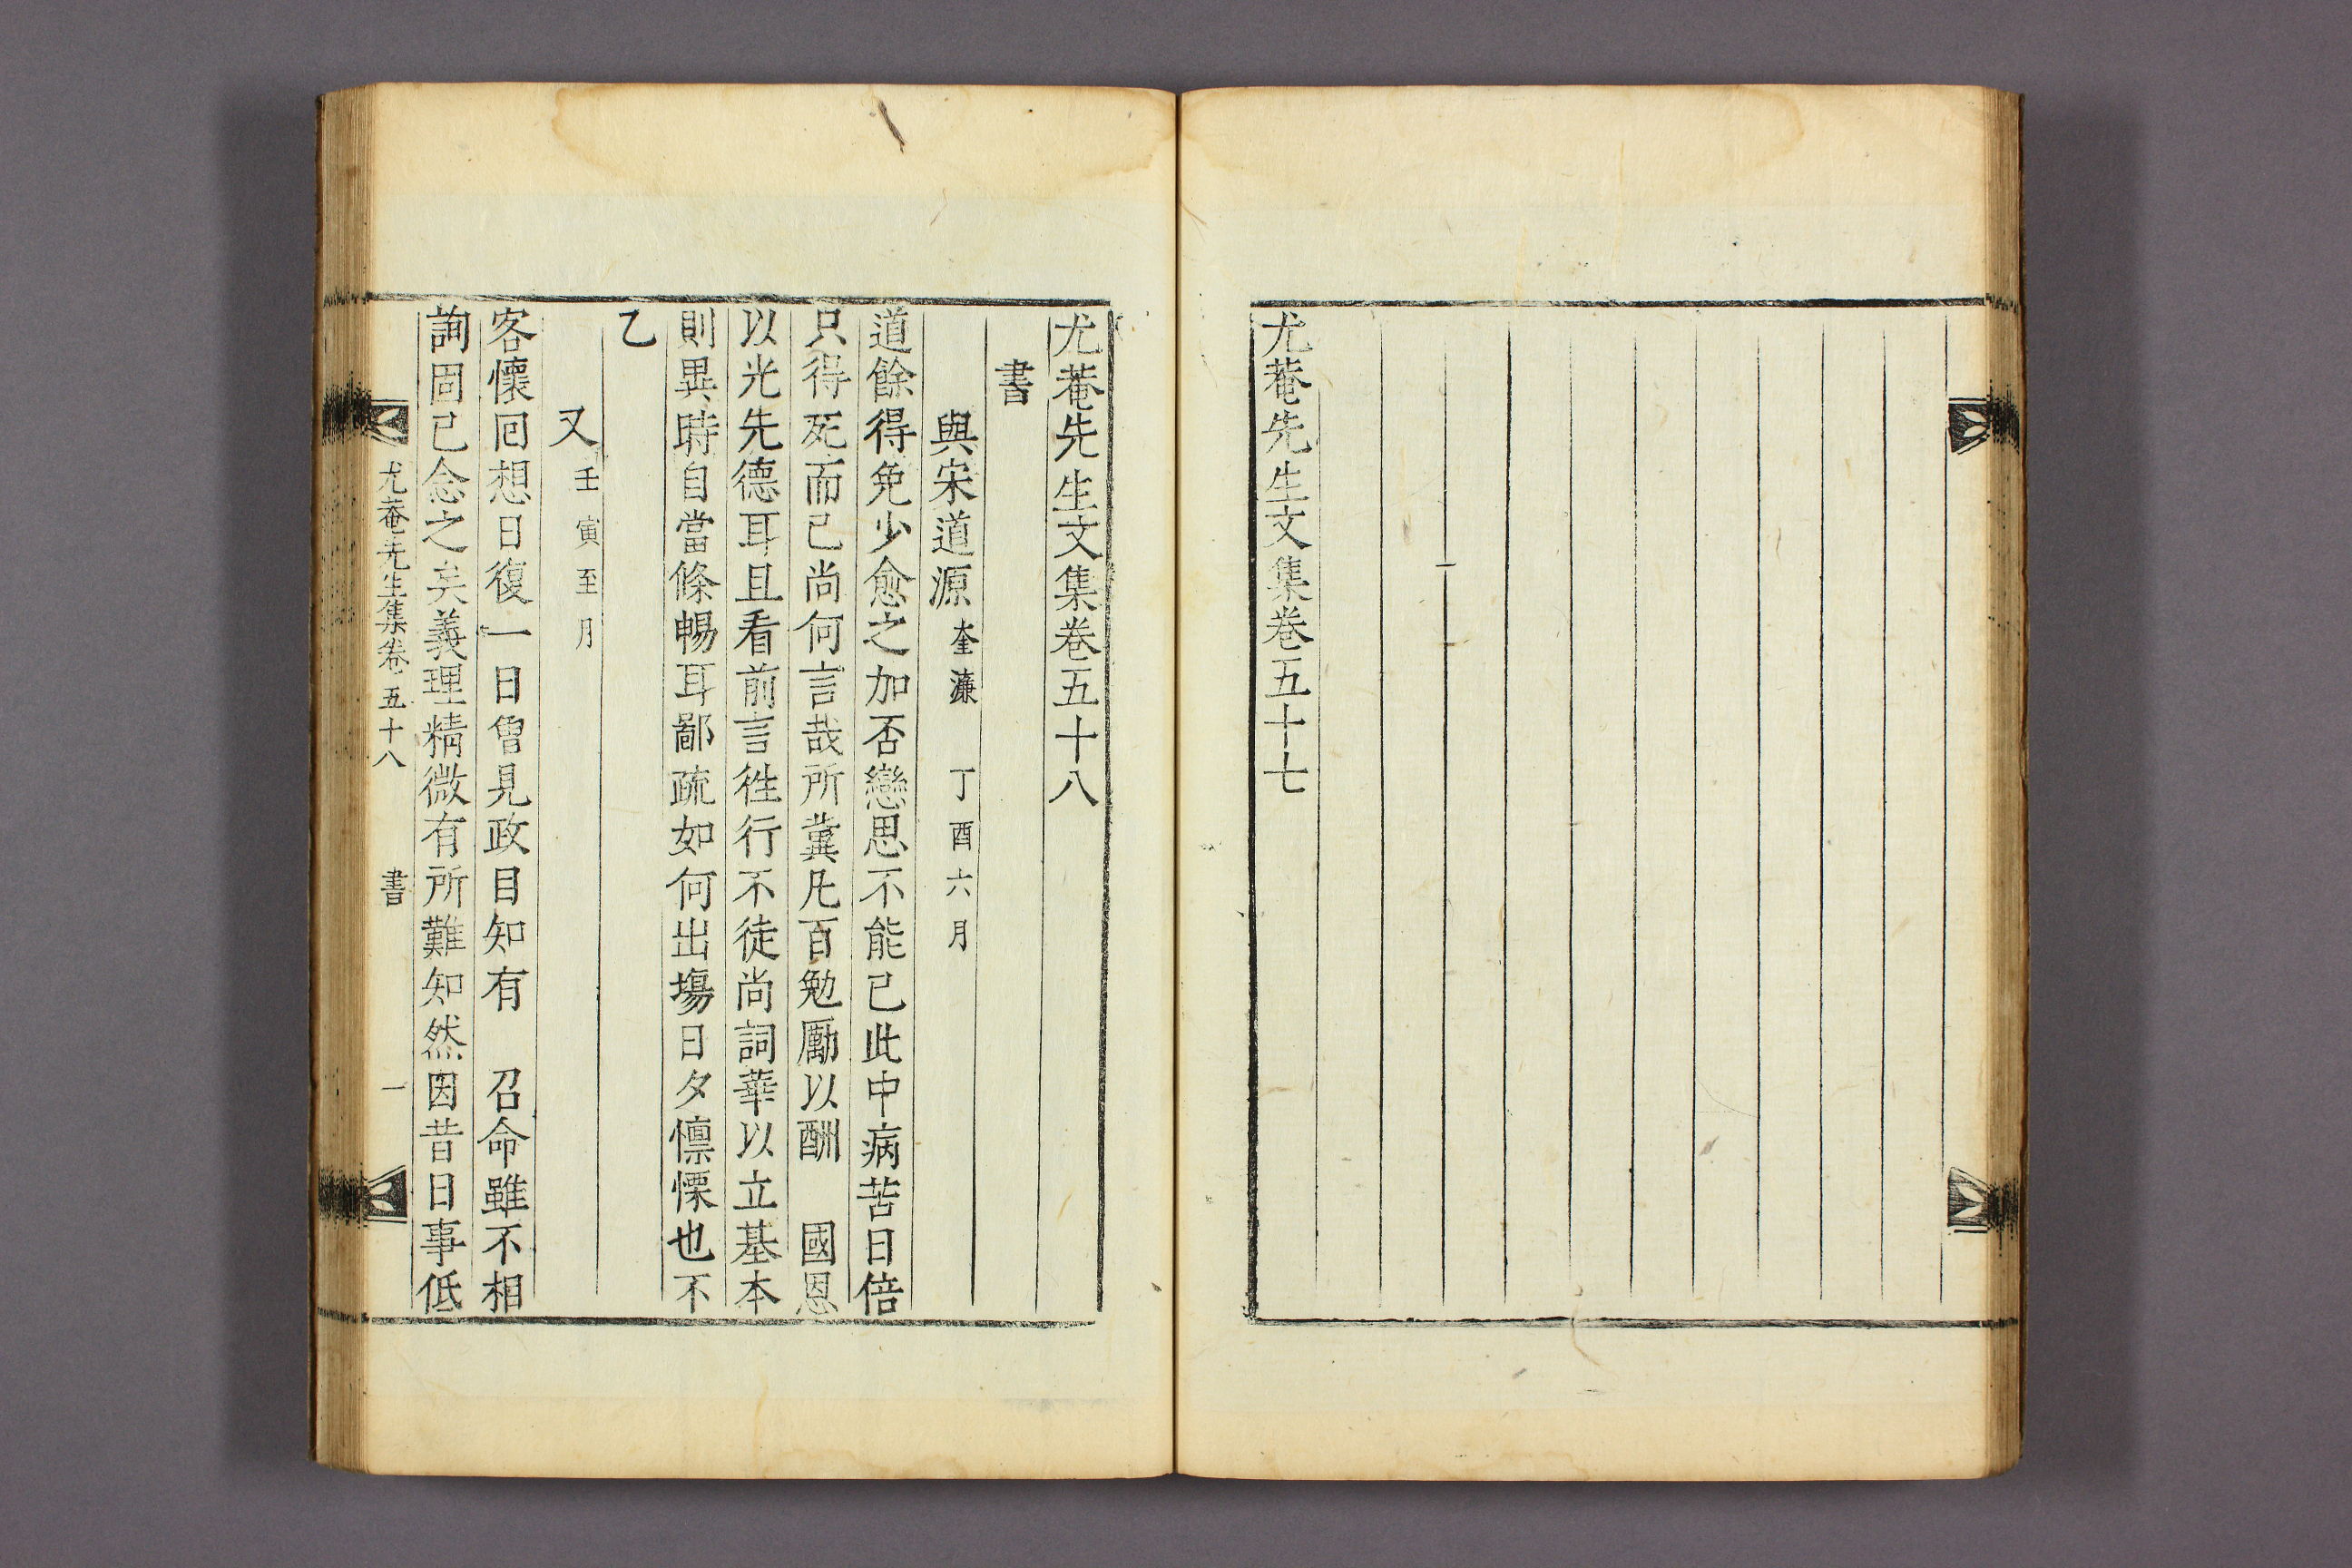 尤菴先生文集卷五十七
尤菴先生文集卷五十八
書
與宋道源 奎濂 丁酉六月
道餘得免少愈之加否戀思不能已此中病苦日倍
只得死而已尚何言哉所冀凡百勉勵以酬 國恩
以光先德耳且看前言徃行不徒尚詞華以立基本
則異時自當條暢耳鄙疏如何出塲日夕懍慄也不
乙
又 壬寅至月
客懷囘想日復一日曾見政目知有 召命雖不相
詢固已念之矣義理精微有所難知然因昔日事低
尤菴先生集卷五十八 書 一